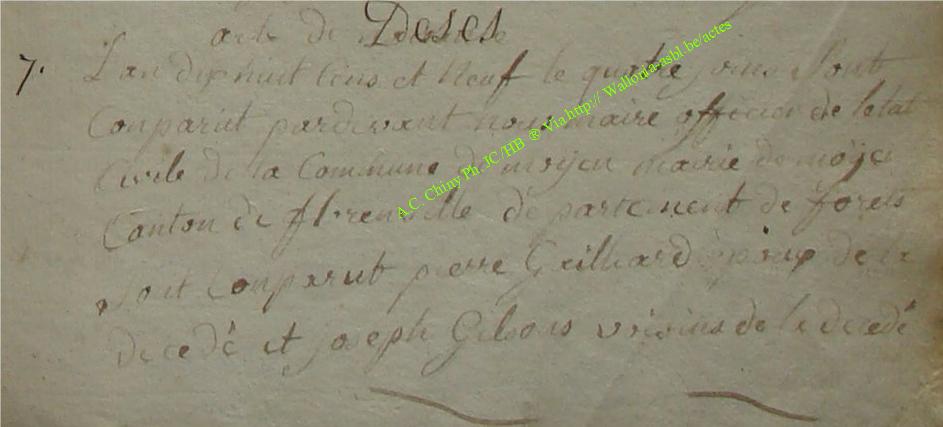 acte de Deses
7. L'an dixhuit cens et neuf le quatre juins sont
Conparut pardevant nous maire officier de letat
Civile de la Commune de moyen mairie de moyen
Canton de florenville departement de forets
sont Conparut pierre Gailliard epoux de la
decedé et joseph Gilsons voisins de la decedé
A.C. Chiny Ph. JC/HB ® Via http:// Wallonia-asbl be/actes